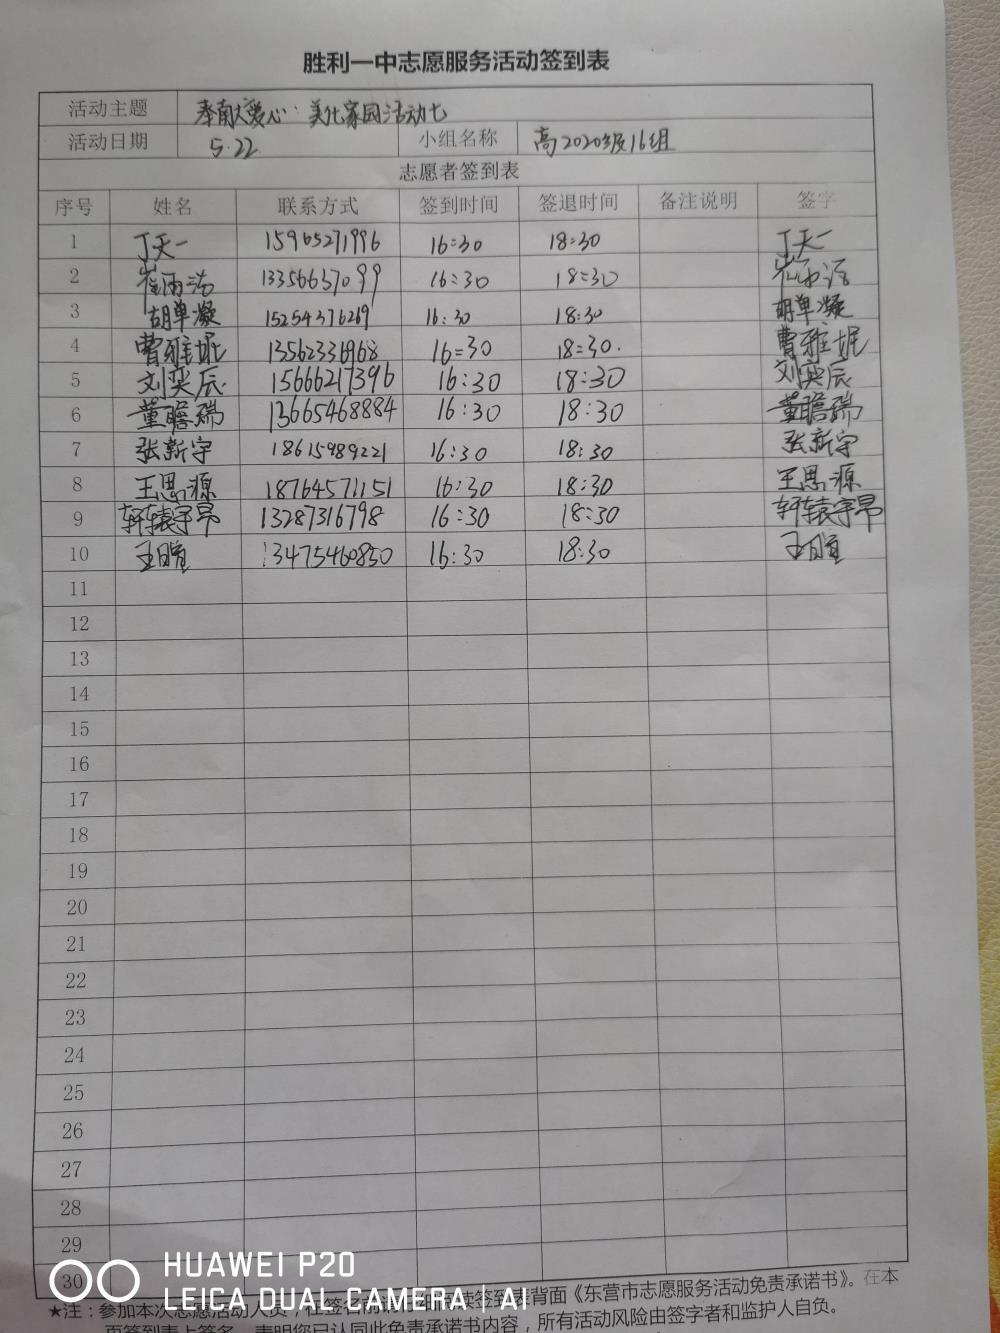 胜利一中志愿服务活动签到表
活动主题 奉献爱心·美化家园活动七
活动日期 5.22 小组名称 高2020级16组
志愿者签到表
序号 姓名 联系方式 签到时间 签退时间 备注说明 签字
1 丁天一 15965271996 16:30 18:30 丁天一
2 崔雨洁 13356637099 16:30 18:30 崔雨洁
3 胡单凝 15254376269 16:30 18:30 胡单凝
4 曹雅妮 13562336968 16=30 18=30. 曹雅妮
5 刘奕辰 15666217396 16:30 18:30 刘奕辰
6 董瞻瑞 13665468884 16:30 18:30 董瞻瑞
7 张新宇 18615989221 16:30 18:30 张新宇
8 王思源 18764571151 16:30 18:30 王思源
9 轩辕宇昂 13287316798 16:30 18:30 轩辕宇昂
10 王日宣 13475460850 16:30 18:30 王日宣
11
12
13
14
15
16
17
18
19
20
21
22
23
24
25
26
27
28
29
30
HUAWEI P20
LEICA DUAL CAMERA | AI
★注：参加本次志愿活动人员，在签名前请仔细阅读签到表背面《东营市志愿服务活动免责承诺书》。在本
页签到表上签名，表明您已认同此免责承诺书内容，所有活动风险由签字者和监护人自负。